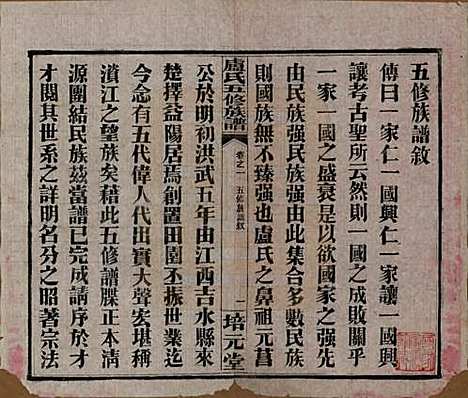 五修族譜敘
傳曰一家仁一國興仁一家讓一國興
讓考古聖所云然則一國之成敗關乎
一家一國之盛衰是以欲國家之强先
由民族强民族强由此集合多數民族
則國族無不臻强也盧氏之鼻祖元菖
盧氏五修族譜
卷之一
五修族譜敘
一
培元堂
公於明初洪武五年由江西吉水縣來
楚擇益陽居焉創置田園丕振世業迄
今念有五代偉人代出實大聲宏堪稱
濱江之望族矣藉此五修譜牒正本淸
源團結民族玆當譜已完成請序於才
才閱其世系之詳明名分之昭著宗法